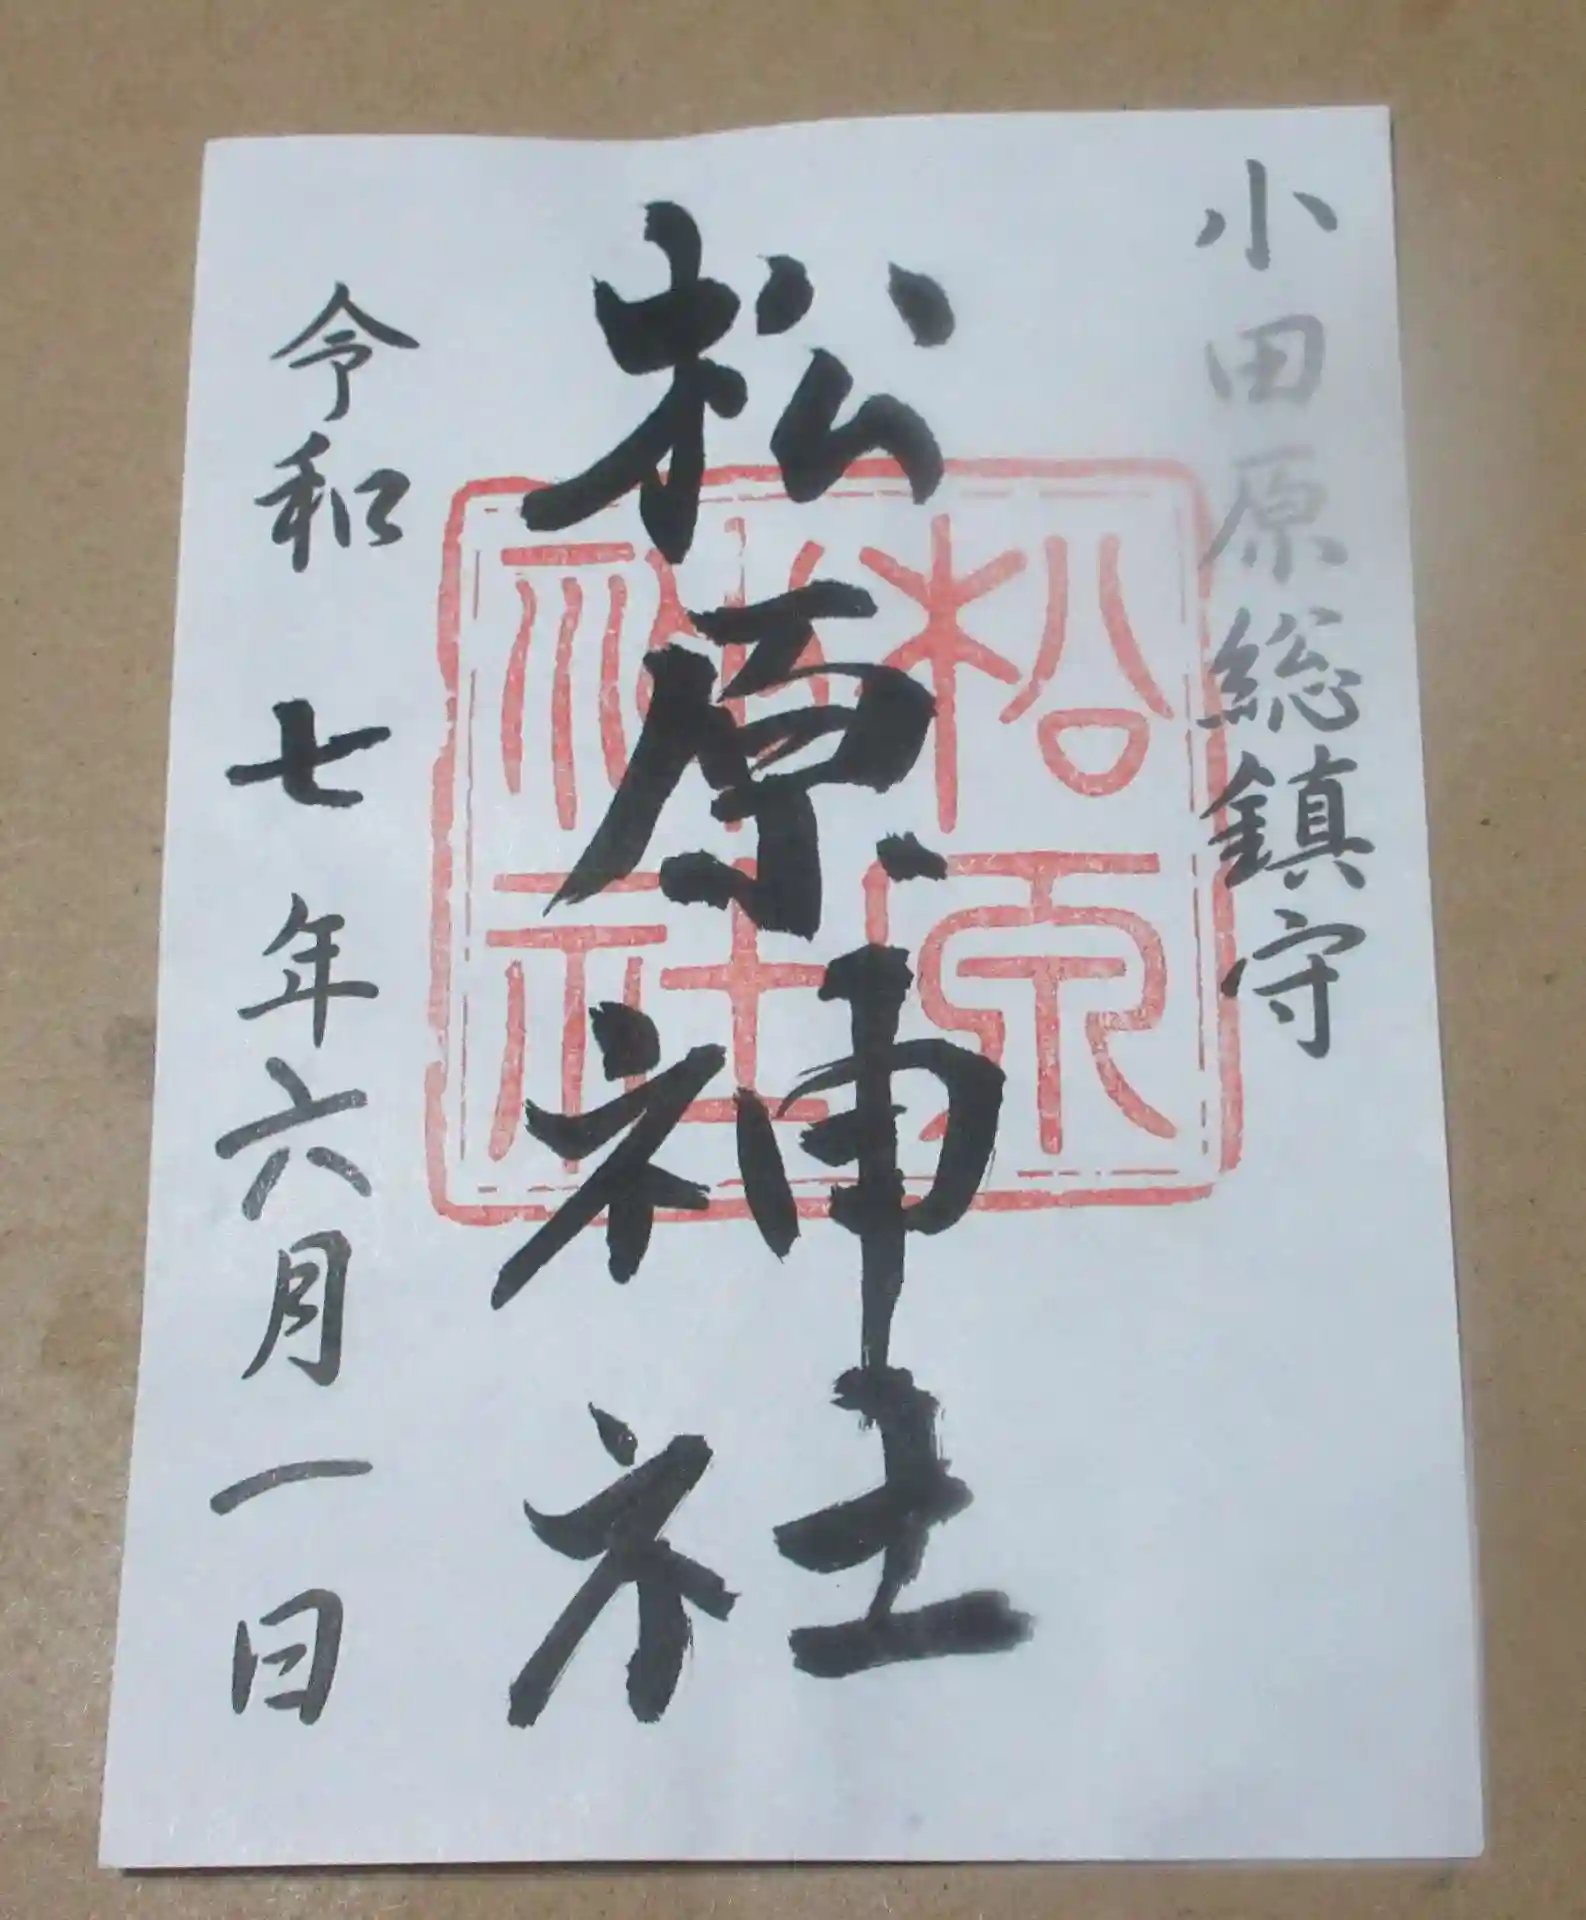 小田原総鎮守
松原神社
松原神社
令和七年六月一日